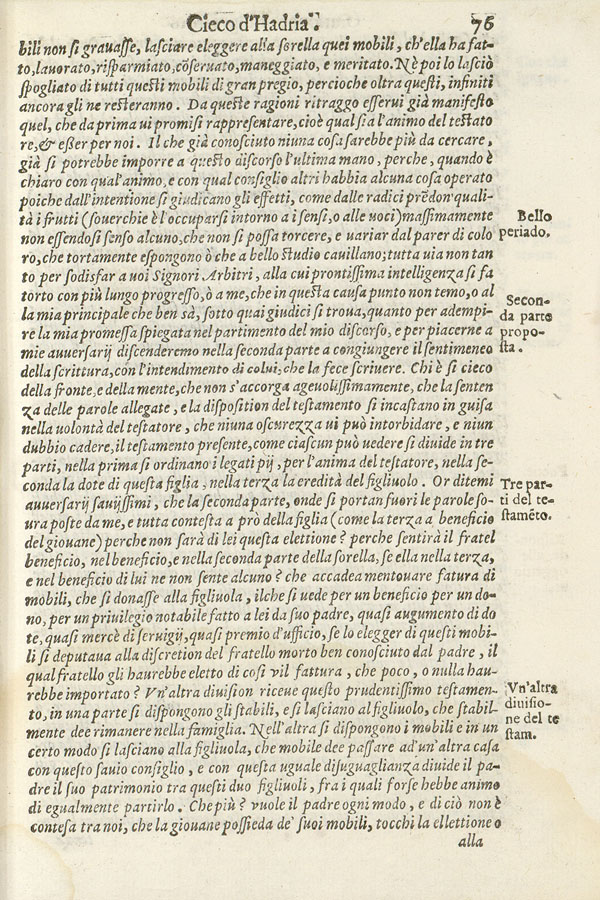 Cieco d'Hadria. 76
bili non si grauasse, lasciare eleggere alla sorella quei mobili, ch'ella ha fat-
to, lauorato, risparmiato, cõseruato, maneggiato, e meritato. Nè poi lo lasciò
spogliato di tutti questi mobili di gran pregio, percioche oltra questi, infiniti
ancora gli ne resteranno. Da queste ragioni ritraggo esserui già manifesto
quel, che da prima ui promisi rappresentare, cioè qual sia l'animo del testato
re, & eßer per noi. Il che già conosciuto niuna cosa sarebbe più da cercare,
già si potrebbe imporre a questo discorso l'ultima mano, perche, quando è
chiaro con qual'animo, e con qual consiglio altri habbia alcuna cosa operato
poiche dall'intentione si giudicano gli effetti, come dalle radici prẽdon quali-
tà i frutti (souerchie è l'occuparsi intorno a i sensi, o alle uoci) massimamente
non essendosi senso alcuno, che non si possa torcere, e uariar dal parer di colo
ro, che tortamente espongono ò che a bello studio cauillano; tutta uia non tan
to per sodisfar a uoi Signori Arbitri, alla cui prontissima intelligenza si fa
torto con più lungo progresso, ò a me, che in questa causa punto non temo, o al
la mia principale che ben sà, sotto quai giudici si troua, quanto per adempi-
re la mia promessa spiegata nel partimento del mio discorso, e per piacerne a
mie auuersarij discenderemo nella seconda parte a congiungere il sentimeneo
della scrittura, cón l'intendimento di colui, che la fece scriuere. Chi è sì cieco
della fronte, e della mente, che non s'accorga ageuolissimamente, che la senten
za delle parole allegate, e la disposition del testamento si incastano in guisa
nella volontà del testatore, che niuna oscurezza ui può intorbidare, e niun
dubbio cadere, il testamento presente, come ciascun può uedere si diuide in tre
parti, nella prima si ordinano i legati pij, per l'anima del testatore, nella se-
conda la dote di questa figlia, nella terza la eredità del figliuolo. Or ditemi
auuersarij sauijssimi, che la seconda parte, onde si portan fuori le parole so-
ura poste da me, e tutta contesta a prò della figlia (come la terza a beneficio
del giouane) perche non sarà di lei questa elettione? perche sentirà il fratel
beneficio, nel beneficio, e nella seconda parte della sorella, se ella nella terza,
e nel beneficio di lui ne non sente alcuno? che accadea mentouare fatura di
mobili, che si donasse alla figliuola, ilche si uede per un beneficio per un do-
no, per un priuilegio notabile fatto a lei da suo padre, quasi augumento di do
te, quasi mercè di seruigij, quasi premio d'ufficio, se lo elegger di questi mobi-
li si deputaua alla discretion del fratello morto ben conosciuto dal padre, il
qual fratello gli haurebbe eletto di così vil fattura, che poco, o nulla hau-
rebbe importato? Vn'altra diuision riceue questo prudentissimo testamen-
to, in una parte si dispongono gli stabili, e si lasciano al figliuolo, che stabil-
mente dee rimanere nella famiglia. Nell'altra si dispongono i mobili e in un
certo modo si lasciano alla figliuola, che mobile dee passare ad'un'altra casa
con questo sauio consiglio, e con questa uguale disuguaglianza diuide il pa-
dre il suo patrimonio tra questi duo figliuoli, fra i quali forse hebbe animo
di egualmente partirlo. Che più? vuole il padre ogni modo, e di ciò non è
contesa tra noi, che la giouane possieda de' suoi mobili, tocchi la ellettione o
alla
Bello
periado.
Secon-
da parte
propo-
sta.
Tre par-
ti del te-
stamẽto.
Vn'altra
diuisio-
ne del te
stam.